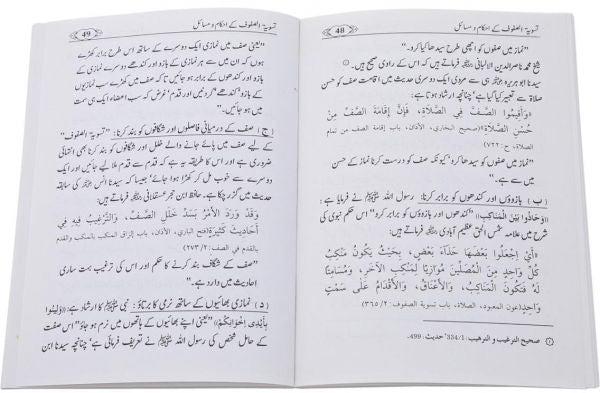 تسویۃ الصفوف کے احکام و مسائل
48
”نماز میں صفوں کو اچھی طرح سیدھا کیا کرو۔“
شیخ محمد ناصرالدین الالبانی فرماتے ہیں کہ اس کے راوی صحیح ہیں۔ ①
سیدنا ابوہریرہ ہی سے مروی ایک دوسری حدیث میں اقامت صف کو حسن
صلاۃ سے تعبیر کیا گیا ہے‘ چنانچہ ارشاد ہوتا ہے:
«وَأَقِيمُوا الصَّفَّ فِي الصَّلَاةِ، فَإِنَّ إِقَامَةَ الصَّفِّ مِنْ
حُسْنِ الصَّلَاةِ»(صحيح البخاري، الأذان، باب إقامة الصف من تمام
الصلاة، ح:٧٢٢)
”نماز میں صف کو سیدھا کرو‘ کیونکہ صف کو درست کرنا نماز کے حسن
میں سے ہے۔“
(ب) بازوؤں اور کندھوں کو برابر کرنا: رسول اللہ ﷺ نے فرمایا ہے:
«وَحَاذُوا بَيْنَ الْمَنَاكِبِ» ”کندھوں اور بازوؤں کو برابر کرو“ اس حکم نبوی کی
شرح میں علامہ شمس الحق عظیم آبادی فرماتے ہیں:
«أَيْ اِجْعَلُوا بَعْضَهَا حِذَاءَ بَعْضٍ، بِحَيْثُ يَكُونُ مَنْكِبُ
كُلِّ وَاحِدٍ مِنَ الْمُصَلِّينَ مُوَازِيًا لِمَنْكِبِ الْآخَرِ، وَمُسَامِتًا
لَهُ فَتَكُونُ الْمَنَاكِبُ، وَالْأَعْنَاقُ، وَالْأَقْدَامُ عَلَى سَمْتٍ
وَاحِدٍ»(عون المعبود، الصلاة، باب تسوية الصفوف: ٢/٣٦٥)
① صحیح الترغیب و الترھیب: 334/1‘ حدیث: 499۔
تسویۃ الصفوف کے احکام و مسائل
49
”یعنی صف میں نمازی ایک دوسرے کے ساتھ اس طرح برابر کھڑے
ہوں کہ ان میں سے ہر نمازی کے بازو اور کندھے دوسرے نمازی کے
بازو اور کندھوں کے برابر ہو جائیں تاکہ صف میں کھڑے سب نمازیوں
کے بازو‘ کندھے‘ گردنیں اور قدم‘ غرض کہ سب اعضاء ایک ہی سمت
میں ہو جائیں۔“
(ج) صف کے درمیانی فاصلوں اور شگافوں کو بند کرنا: ”تسویۃ الصفوف“
کے لیے صف میں پائے جانے والے خلل اور شگافوں کو بند کرنا بھی انتہائی
ضروری ہے اور اس کا طریقہ یہ ہے کہ قدم سے قدم ملا لیے جائیں اور ایک
دوسرے سے خوب مل کر کھڑا ہوا جائے‘ جیسا کہ سیدنا انس کی سابقہ
حدیث میں گزر چکا ہے۔ حافظ ابن حجر عسقلانی فرماتے ہیں:
وَقَدْ وَرَدَ الْأَمْرُ بِسَدِّ خَلَلِ الصَّفِّ، وَالتَّرْغِيبُ فِيهِ فِي
أَحَادِيثَ كَثِيرَةٍ(فتح الباري، الأذان، باب إلزاق المنكب بالمنكب والقدم
بالقدم في الصف: ٢/٢٧٣)
”صف کے شگاف بند کرنے کا حکم اور اس کی ترغیب بہت ساری
احادیث میں وارد ہے۔“
(د) نمازی بھائیوں کے ساتھ نرمی کا برتاؤ: نبی ﷺ کا ارشاد ہے: «وَلِينُوا
بِأَيْدِي إِخْوَانِكُمْ» ”یعنی اپنے بھائیوں کے ہاتھوں میں نرم ہو جاؤ“ اس صفت
کے حامل شخص کی رسول اللہ ﷺ نے تعریف فرمائی ہے‘ چنانچہ سیدنا ابن